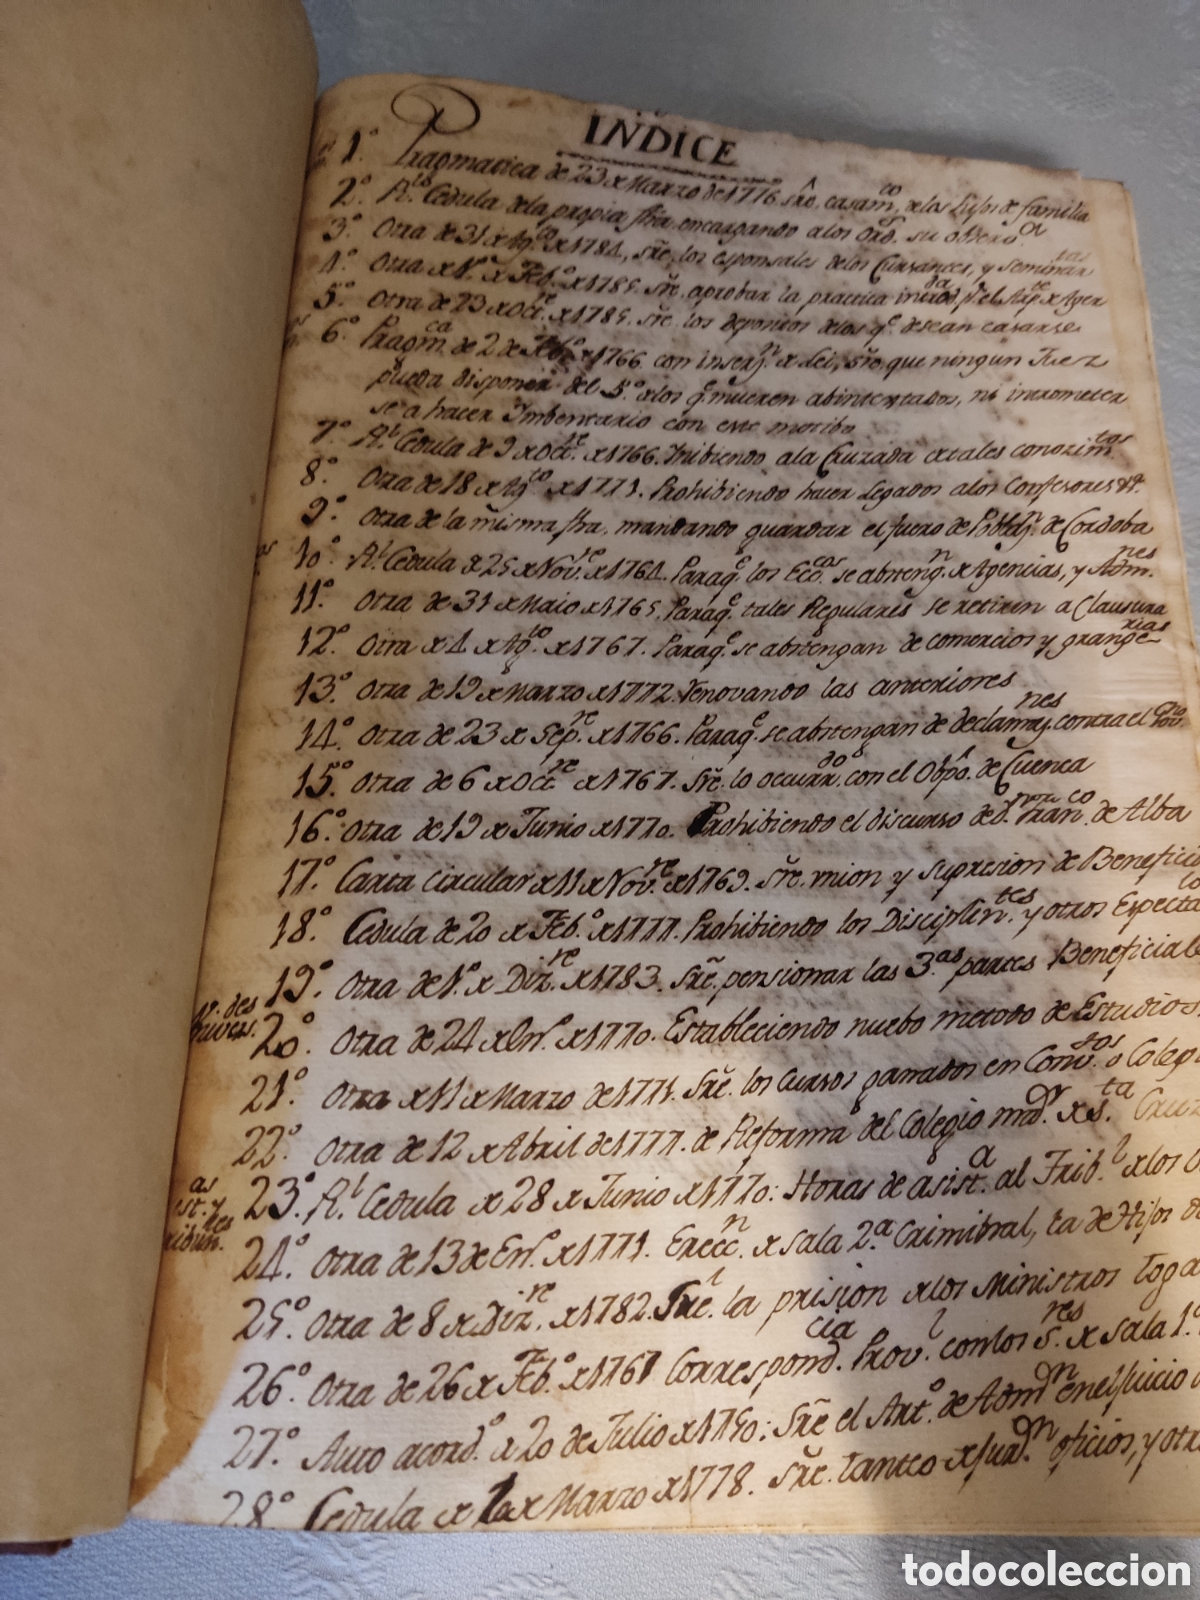 INDICE
1.º Pragmatica de 23 x Marzo de 1776. Sre. casam.to de los hijos de familia
2.º R.l Cedula de la propia fha. encargando a los Ord.s su observ.a
3.º Otra de 31 x Ag.to x 1784, Sre. los esponsales de los Cursantes, y Seminar
4.º Otra x 1.º x Feb.º x 1785. Sre. aprobar la practica introd.da p.r el Arp.e x Tger
5.º Otra x 23 x Oct.re x 1785. Sre. los depositos de los q.e desean casarse
6.º Pragm.ca de 2 de Feb.º x 1766 con inser.n x Lei, Sre. que ningun Juez
pueda disponer del 5.º x los q.e mueren abintestados, ni intrometer
se a hacer Imbentario con este motibo
7.º R.l Cedula de 9 x Oct.re x 1766. Inibiendo a la Cruzada x tales conozim.tos
8.º Otra de 18 x Ag.to x 1771. Prohibiendo hacer Legados a los Confesores &.
9.º Otra de la misma fha. mandando guardar el fuero de Poblaz.n de Cordoba
10.º R.l Cedula x 25 x Nov.re x 1764. Paraq.e los Ecc.cas se absteng.n x Agencias, y Adm.nes
11.º Otra de 31 x Maio x 1765. Paraq.e tales Regulares se retiren a Clausura
12.º Otra x 4 x Ag.to x 1767. Paraq.e se abstengan de comercios y grange.rias
13.º Otra de 19 x Marzo x 1772. Renovando las anteriores
14.º Otra de 23 x Sep.re x 1766. Paraq.e se abstengan de declamaz.nes contra el Gov.no
15.º Otra de 6 x Oct.re x 1767. Sre. lo occurr.do con el Obpo. de Cuenca
16.º Otra de 19 x Junio x 1770. Prohibiendo el discurso de d.n Fran.co de Alba
17.º Carta circular x 11 x Nov.re x 1769. Sre. union y supresion de Benefici
18.º Cedula de 20 x Feb.º x 1777. Prohibiendo los Disciplin.tes y otros Especta
19.º Otra de 1.º x Diz.re x 1783. Sre. pensionar las 3.as partes Beneficiale
20.º Otra de 24 x En.º x 1770. Estableciendo nuebo metodo de Estudios
21.º Otra x 11 x Marzo de 1771. Sre. los Cursos ganados en Conv.tos o Colegi
22.º Otra de 12 x Abril de 1777. de Reforma del Colegio may.r x S.ta Cruz
23.º R.l Cedula x 28 x Junio x 1770: Horas de asist.a al Trib.l x los
24.º Otra de 13 de En.º x 1771. Erecc.n x Sala 2.ª Criminal, la de Hijos d
25.º Otra de 8 x Diz.re x 1782. Sre. la prision x los Ministros Toga
26.º Otra de 26 x Feb.º x 1767 Correspond.cia Prov.l con los S.res x Sala 1.ª
27.º Auto acord.º x 20 de Julio x 1750: Sre el Art.º de Adm.n en el Juicio
28.º Cedula x 10 x Marzo x 1778. Sre. tanteo x jurd.n oficios, y otr
todocoleccion